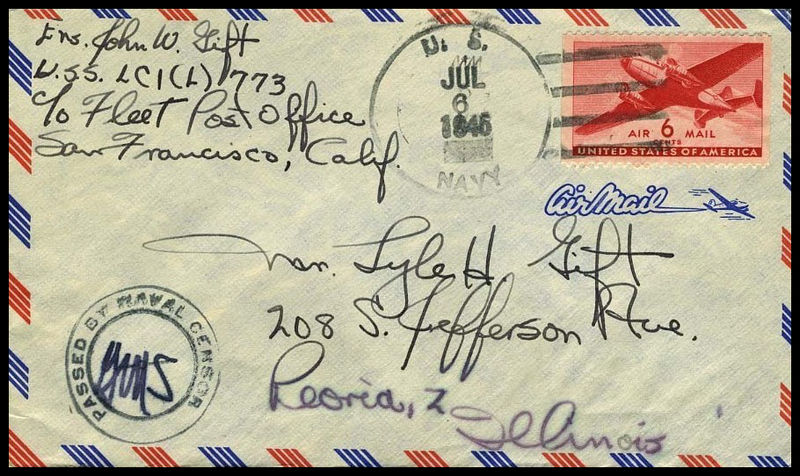 Ens. John W. Gift
U.S.S. LCI(L) 773
c/o Fleet Post Office
San Francisco, Calif.
U. S.
JUL
6
1945
NAVY
AIR 6 MAIL
CENTS
UNITED STATES OF AMERICA
Air Mail
Mr. Lyle H Gift
208 S. Jefferson Ave.
Peoria, 2
Illinois
PASSED BY NAVAL CENSOR